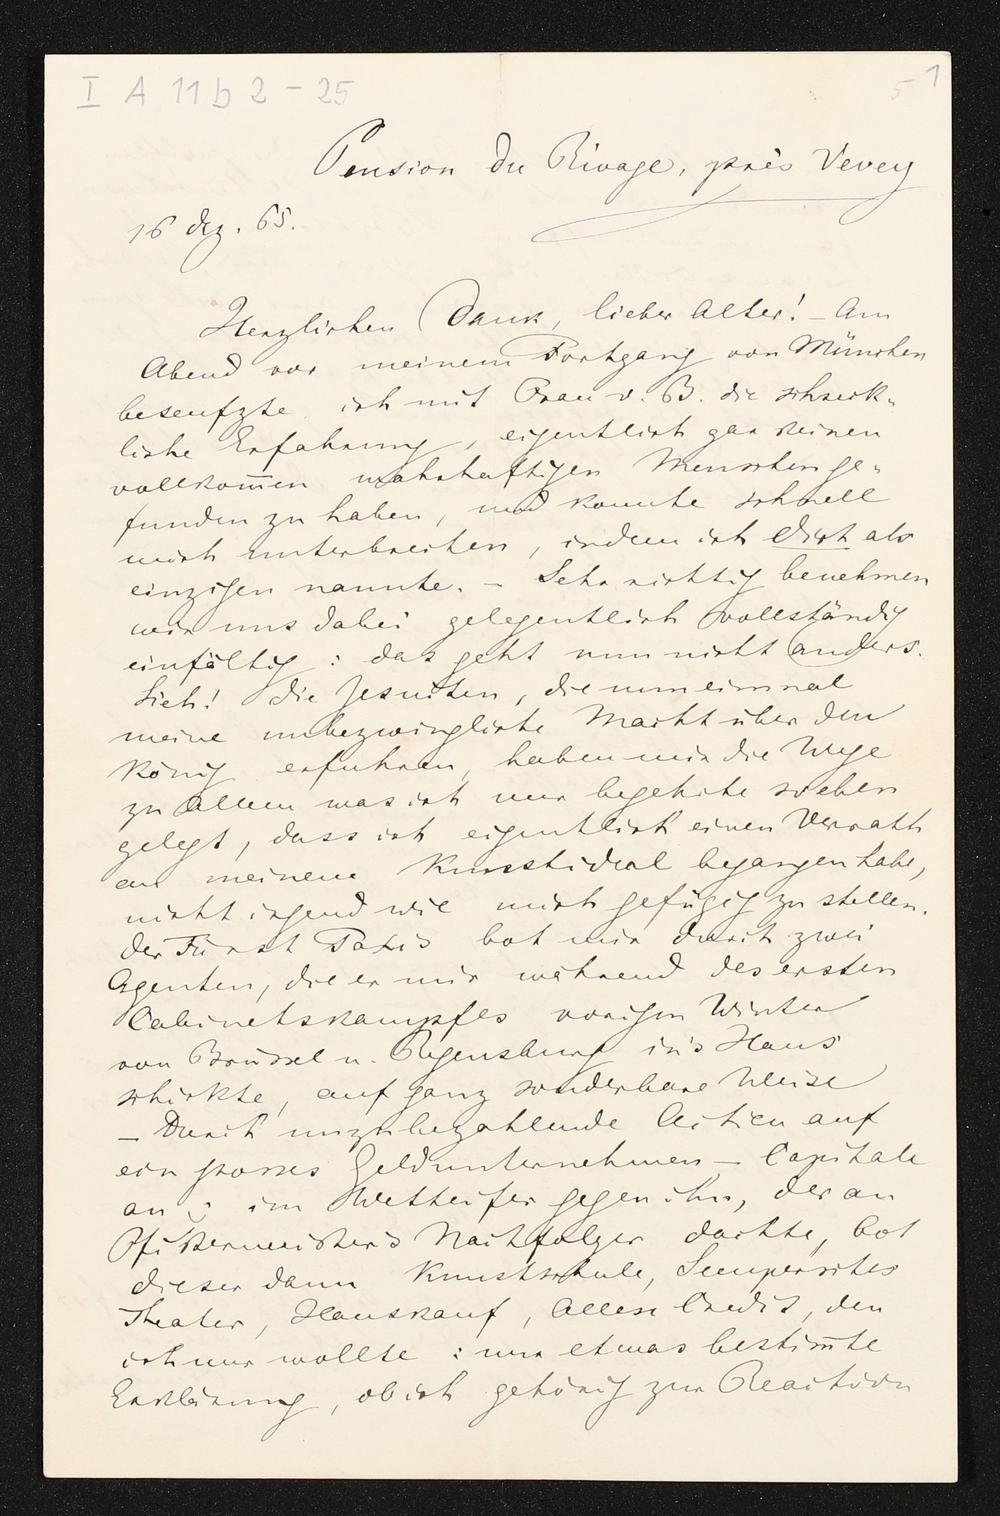 I A 11 b 2 - 25
5 1
Pension du Rivage, près Vevey
16 dez. 65.
Herzlichen Dank, lieber Alter! – Am
Abend vor meinem Fortgang von München
beseufzte ich mit Frau v. B. die schreck-
liche Erfahrung, eigentlich gar keinen
vollkom̅en wahrhaftigen Menschen ge-
funden zu haben, und konnte schnell
mich unterbrechen, indem ich Dich als
einzigen nannte. – Sehr richtig benehmen
wir uns dabei gelegentlich vollständig
einfältig: das geht nun nicht anders.
Sieh! Die Jesuiten, die nun einmal
meine unbezwingliche Macht über den
König erfuhren, haben mir die Wege
zu Allem was ich nur begehrte so eben
gelegt, dass ich eigentlich einen Verrath
an meinem Kunstideal begangen habe,
nicht irgend wie mich gefügig zu stellen.
Der Fürst Taxis bot mir durch zwei
Agenten, die er mir während des ersten
Cabinetskampfes vorigen Winter
von Brüssel u. Regensburg in's Haus
schickte, auf ganz sonderbare Weise
– Durch unzubezahlende Actien auf
ein grosses Geldunternehmen – Capitale
an; im Wetteifer gegen ihn, der an
Pfistermeister's Nachfolger dachte, bot
dieser dann Kunstschule, Semper'sches
Theater, Hauskauf, Allen Credit, den
ich nur wollte: nur etwas bestim̅te
Erklärung, ob ich gehörig zur Reaction